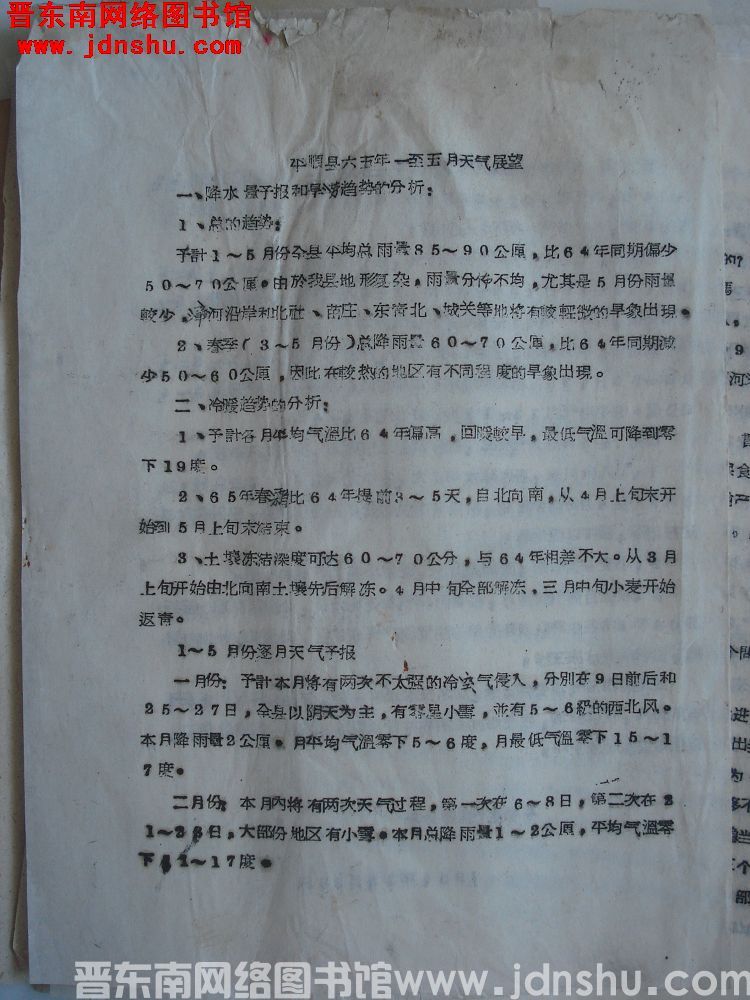 晋东南网络图书馆
www.jdnshu.com
平顺县六五年一至五月天气展望
一、降水量予报和旱涝趋势的分析：
1、总的趋势：
予計1～5月份全县平均总雨量85～90公厘，比64年同期偏少
50～70公厘。由於我县地形复杂，雨量分佈不均，尤其是5月份雨量
較少，漳河沿岸和北社、苗庄、东寺北、城关等地将有較輕微的旱象出現。
2、春季（3～5月份）总降雨量60～70公厘，比64年同期減
少50～60公厘，因此在較热的地区有不同程度的旱象出現。
二、冷暖趋势的分析：
1、予計各月平均气溫比64年偏高，回暖較早，最低气溫可降到零
下19度。
2、65年春霜比64年提前3～5天，自北向南，从4月上旬末开
始到5月上旬末結束。
3、土壤冻结深度可达60～70公分，与64年相差不大。从3月
上旬开始由北向南土壤先后解冻。4月中旬全部解冻，三月中旬小麦开始
返青。
1～5月份逐月天气予报
一月份：予計本月将有两次不太强的冷空气侵入，分別在9日前后和
25～27日，全县以阴天为主，有零星小雪，並有5～6級的西北风。
本月降雨量2公厘。月平均气溫零下5～6度，月最低气溫零下15～1
7度。
二月份：本月內将有两次天气过程，第一次在6～8日，第二次在2
1～23日，大部份地区有小雪。本月总降雨量1～2公厘，平均气溫零
下 ～17度。
晋东南网络图书馆 www.jdnshu.com